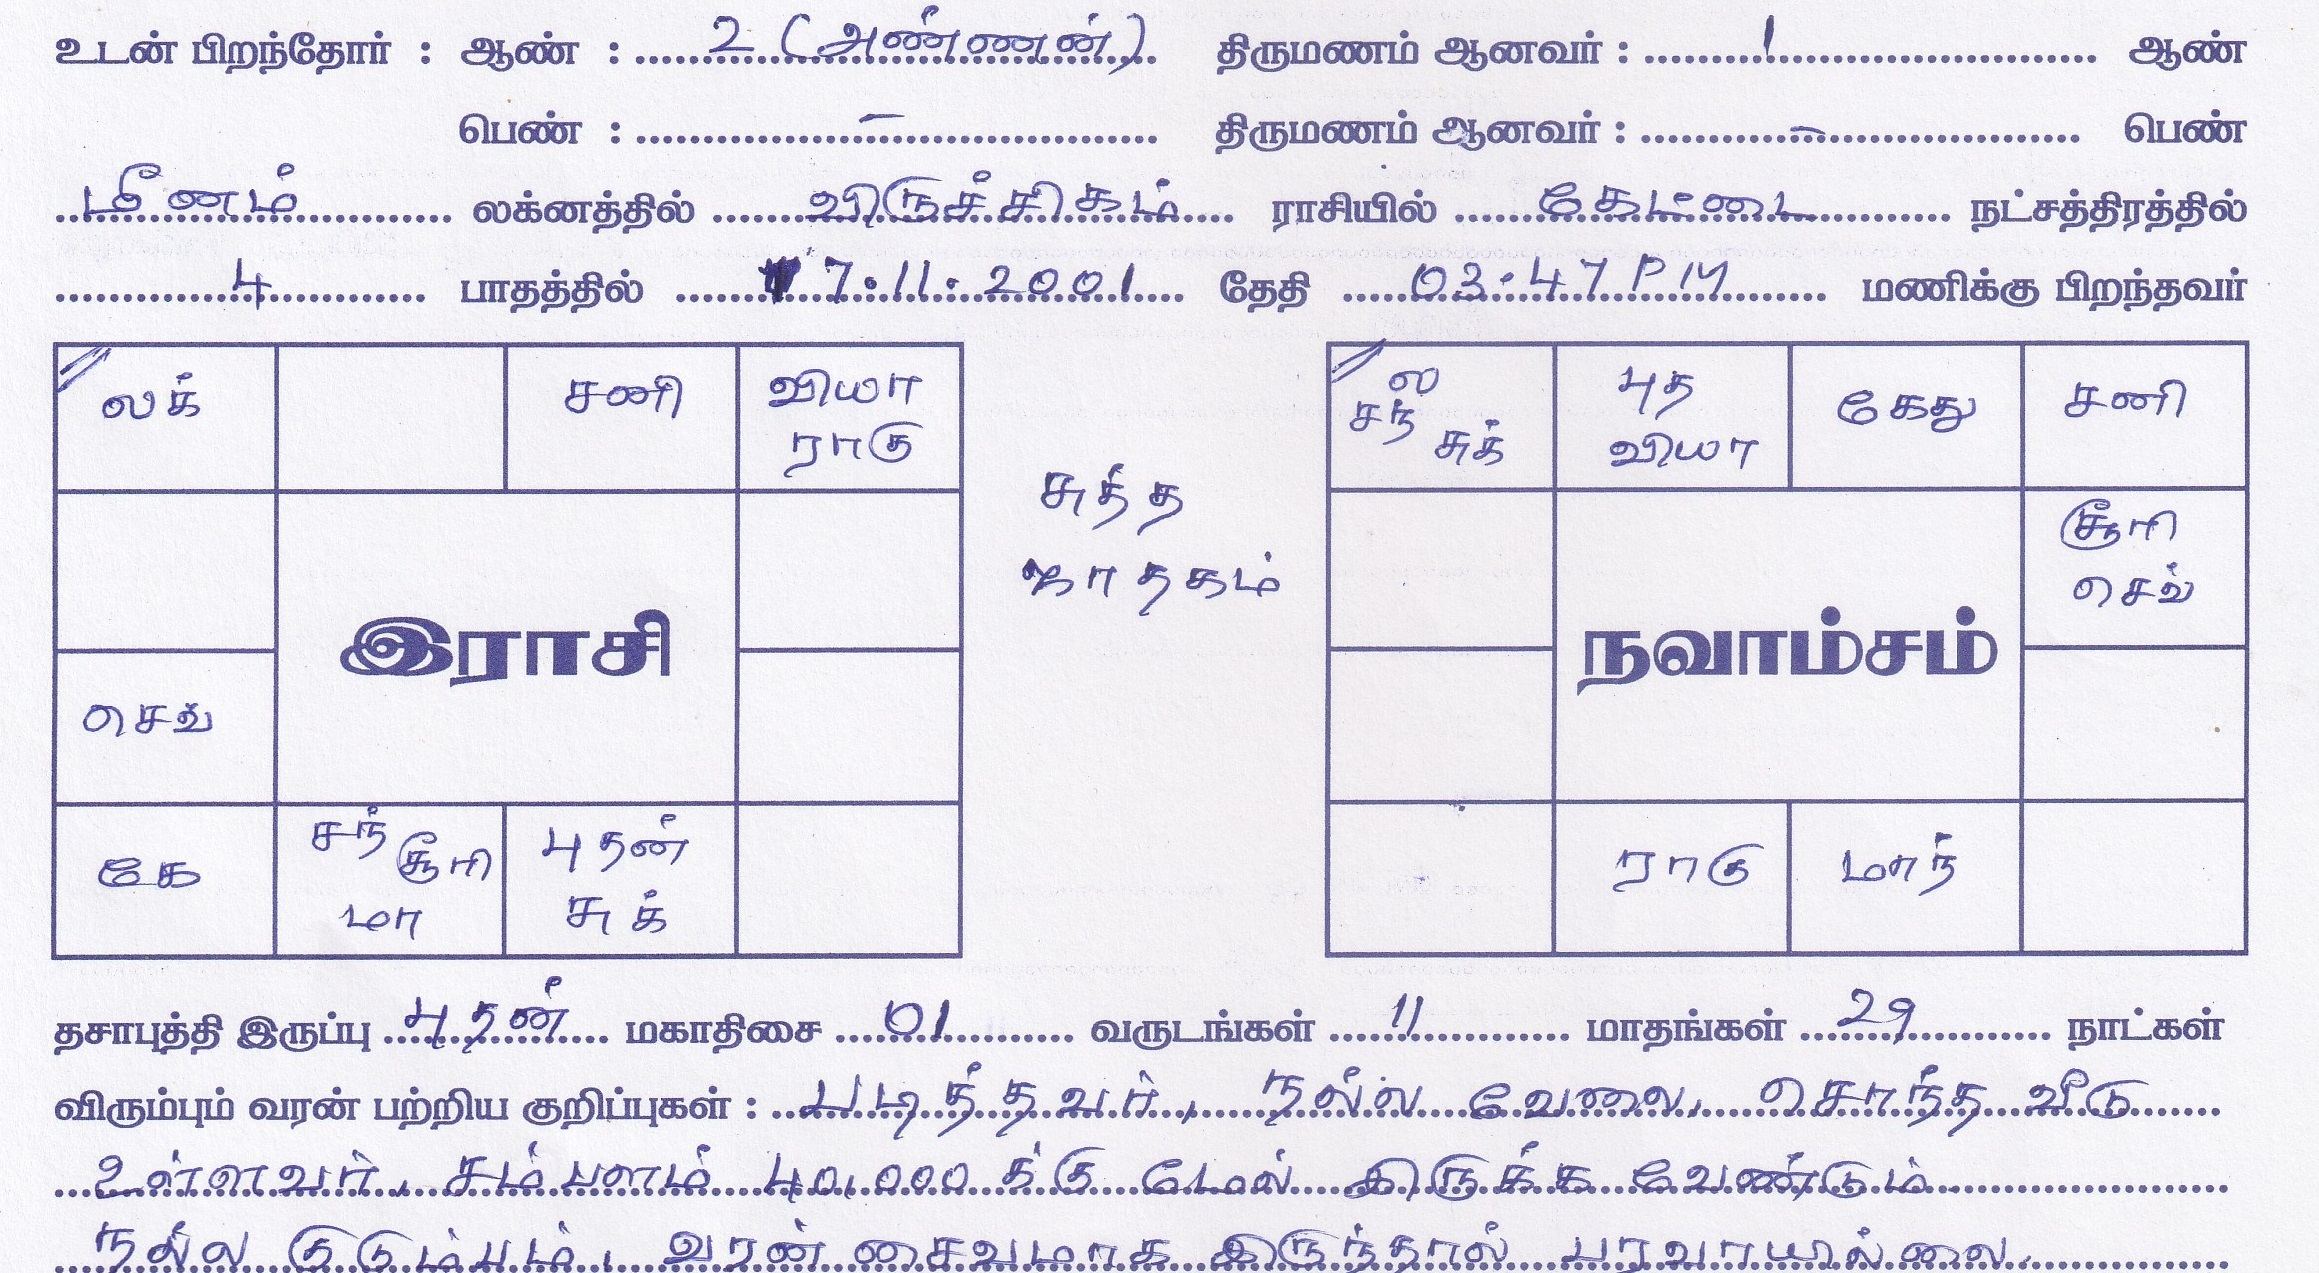 உடன் பிறந்தோர் : ஆண் : 2 (அண்ணன்) திருமணம் ஆனவர் : 1 ஆண்
பெண் : – திருமணம் ஆனவர் : – பெண்
மீனம் லக்னத்தில் விருச்சிகம் ராசியில் கேட்டை நட்சத்திரத்தில்
4 பாதத்தில் 17.11.2001 தேதி 03.47 PM மணிக்கு பிறந்தவர்
லக் சனி வியா ராகு
செவ்
கே சந் சூரி மா புதன் சுக்
இராசி
சுத்த
ஜாதகம்
ல சந் சுக் புத வியா கேது சனி
சூரி செவ்
ராகு மாந்
நவாம்சம்
தசாபுத்தி இருப்பு புதன் மகாதிசை 01 வருடங்கள் 11 மாதங்கள் 29 நாட்கள்
விரும்பும் வரன் பற்றிய குறிப்புகள் : படித்தவர், நல்ல வேலை, சொந்த வீடு
உள்ளவர், சம்பளம் 40,000 க்கு மேல் இருக்க வேண்டும்
நல்ல குடும்பம், வரன் சைவமாக இருந்தால் பரவாயில்லை.